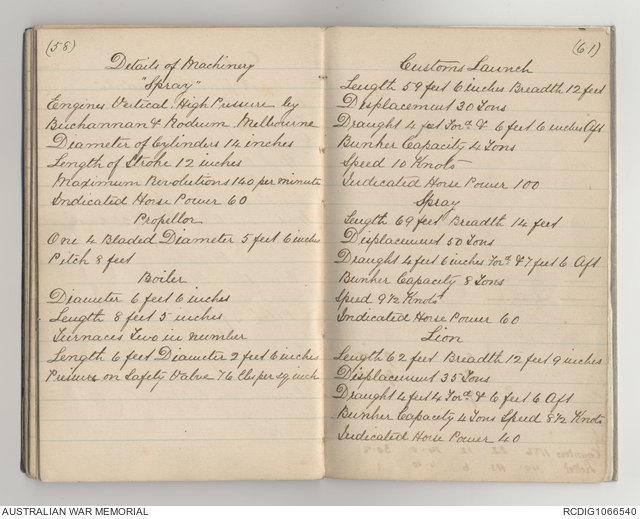 (58)
Details of Machinery
"Spray"
Engines Vertical High Pressure by
Buchannan & Rodrum Melbourne
Diameter of Cylinders 14 inches
Length of Stroke 12 inches
Maximum Revolutions 140 per minute
Indicated Horse Power 60
Propellor
One 4 Bladed Diameter 5 feet 6 inches
Pitch 8 feet
Boiler
Diameter 6 feet 6 inches
Length 8 feet 5 inches
Furnaces Two in number
Length 6 feet Diameter 2 feet 6 inches
Pressure on Safety Valve 76 lbs per sq inch
(61)
Customs Launch
Length 59 feet 6 inches Breadth 12 feet
Displacement 30 Tons
Draught 4 feet For'd & 6 feet 6 inches Aft
Bunker Capacity 4 Tons
Speed 10 Knots
Indicated Horse Power 100
Spray
Length 69 feet Breadth 14 feet
Displacement 50 Tons
Draught 4 feet 6 inches For'd & 7 feet 6 Aft
Bunker Capacity 8 Tons
Speed 9½ Knots
Indicated Horse Power 60
Lion
Length 62 feet Breadth 12 feet 9 inches
Displacement 35 Tons
Draught 4 feet 4 For'd & 6 feet 6 Aft
Bunker Capacity 4 Tons Speed 8½ Knots
Indicated Horse Power 40
AUSTRALIAN WAR MEMORIAL
RCDIG1066540